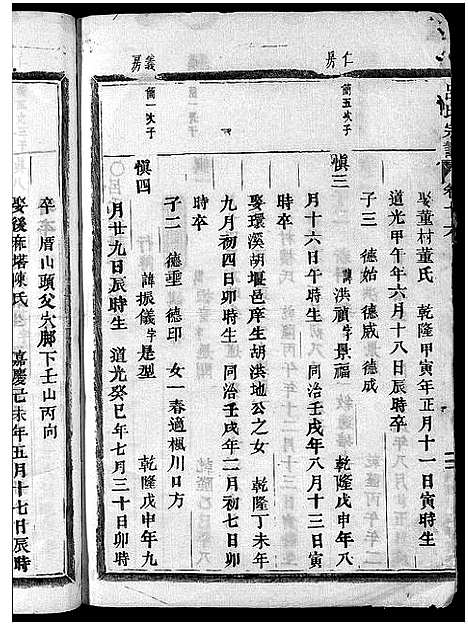 呂氏宗譜
仁房
娶董村董氏 乾隆甲寅年正月十一日寅時生
道光甲午年六月十八日辰時卒
子三 德始 德威 德成
簡五次子
慎三 諱洪禎字景福 乾隆戊申年八
月十六日午時生 同治壬戌年八月十三日寅
時卒
娶環溪胡堰邑庠生胡洪地公之女 乾隆丁未年
九月初四日卯時生 同治壬戌年二月初七日卯
時卒
子二 德埀 德印 女一春適楓川口方
義房
簡一次子
慎四 諱振儀字是型 乾隆戊申年九
月廿九日辰時生 道光癸巳年七月三十日卯時
卒 厝山頭父穴脚下壬山丙向
娶後麻塔陳氏 嘉慶己未年五月十七日辰時